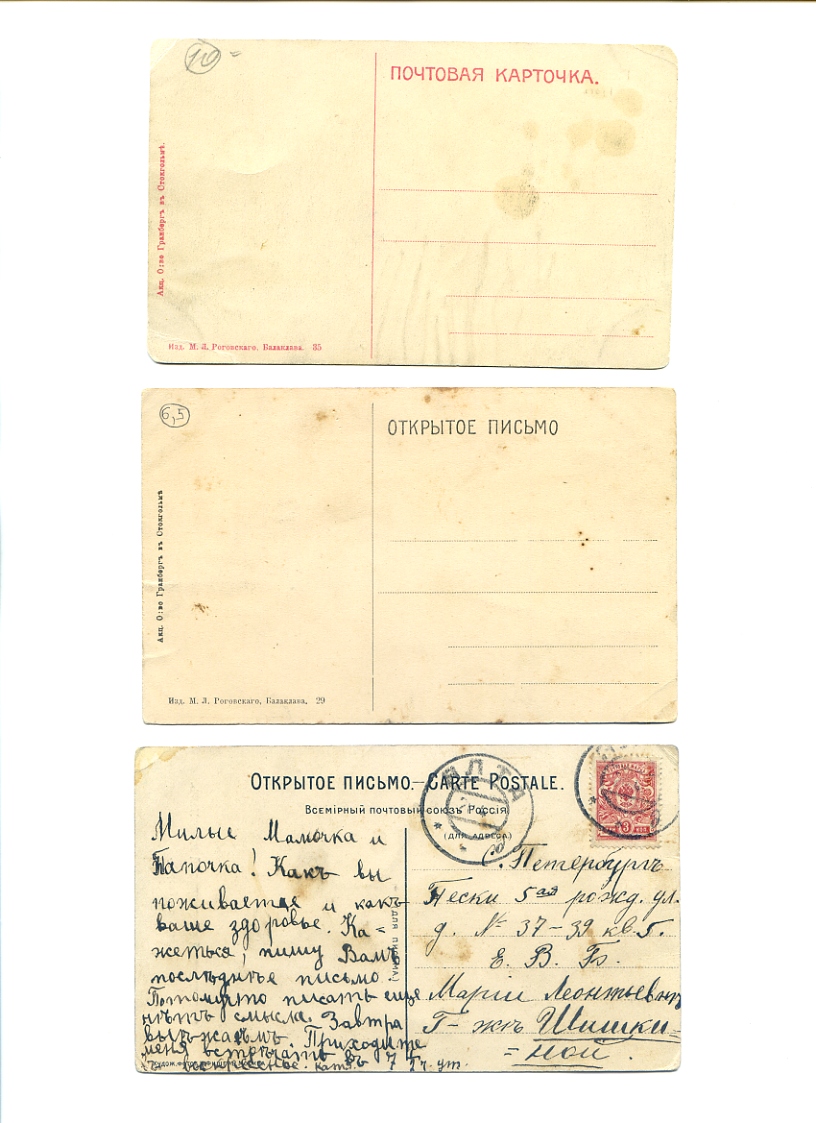 10
ПОЧТОВАЯ КАРТОЧКА.
Акц. О:во Гранбергъ въ Стокгольмѣ.
Изд. М. Л. Роговскаго, Балаклава. 35
6,5
ОТКРЫТОЕ ПИСЬМО
Акц. О:во Гранбергъ въ Стокгольмѣ
Изд. М. Л. Роговскаго, Балаклава. 29
ОТКРЫТОЕ ПИСЬМО.—CARTE POSTALE.
ВСЕМІРНЫЙ ПОЧТОВЫЙ СОЮЗЪ РОССІЯ
(ДЛЯ АДРЕСА)
ЯЛТА
3 КОП
Милые Мамочка и
Папочка! Какъ вы
поживаетае и какъ
ваше здоровье. Ка=
жеться, пишу Вамъ
послѣднѣе письмо.
Потомучто писать еще
нѣтъ смысла. Завтра
выѣжаемъ. Приходите
меня встрѣчать въ 7
воскресенье. ч. ут.
(ДЛЯ ПИСЬМА)
С. Петербургъ
Пески 5ая рожд. ул.
д. № 37-39 кв. 5.
Е. В. Б.
Маріи Леонтьевнѣ
Г-жѣ Шишки=
=ной.